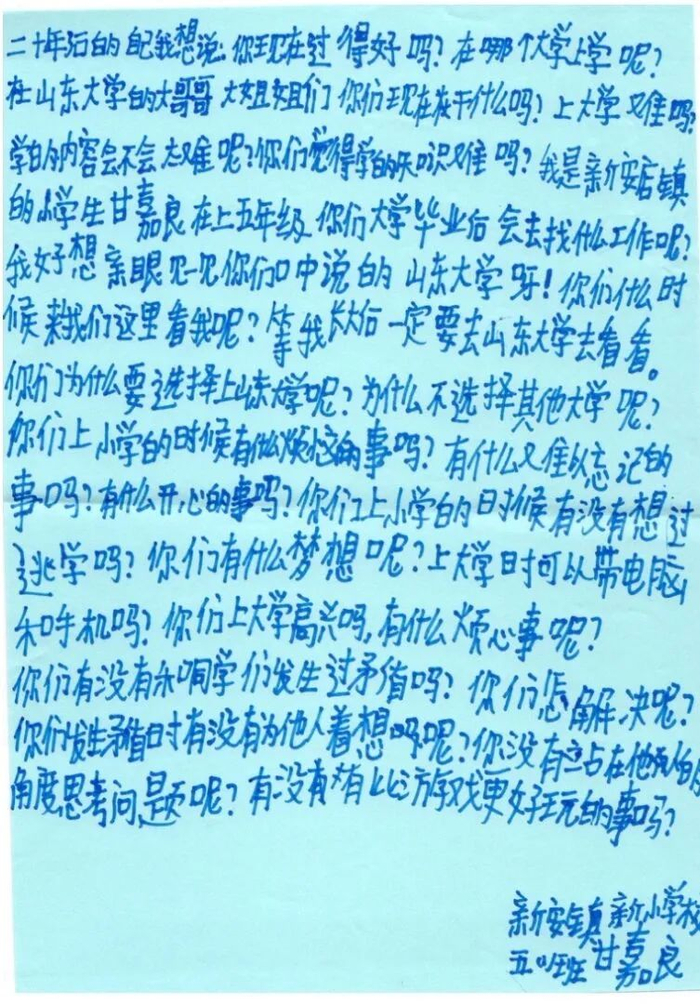 二十年后的自己我想说:你现在过得好吗?在哪个大学上学呢?
在山东大学的大哥哥大姐姐们你们现在在干什么吗?上大学难吗?
学的内容会不会太难呢?你们觉得学的知识难吗?我是新安店镇
的小学生甘嘉良在上五年级你们大学毕业后会去找什么工作呢?
我好想亲眼见一见你们口中说的山东大学呀!你们什么时
候来我们这里看我呢?等我长大后一定要去山东大学去看看。
你们为什么要选择上山东大学呢?为什么不选择其他大学呢?
你们上小学的时候有什么烦恼的事吗?有什么又难以忘记的
事吗?有什么开心的事吗?你们上小学的时候有没有想过
逃学吗?你们有什么梦想呢?上大学时可以带电脑
和手机吗?你们上大学高兴吗,有什么烦心事呢?
你们有没有和同学们发生过矛盾吗?你们怎解决呢?
你们发生矛盾时有没有为他人着想吗呢?你没有站在他的
角度思考问题呢?有没有有比游戏更好玩的事吗?
新安镇新小学校
五班甘嘉良